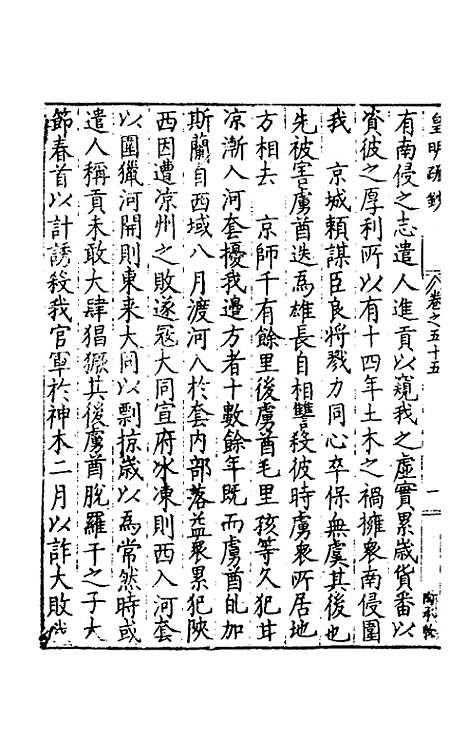 皇明疏鈔 卷之五十五 一
有南侵之志遣人進貢以窺我之虛實累歲貨番以
資彼之厚利所以有十四年土木之禍擁衆南侵圍
我 京城賴謀臣良將戮力同心卒保無虞其後也
先被害虜酋迭爲雄長自相讐殺彼時虜衆所居地
方相去 京師千有餘里後虜酋毛里孩等久犯甘
凉漸入河套擾我邊方者十數餘年旣而虜酋癿加
斯蘭自西域八月渡河入於套內部落益衆累犯陝
西因遭凉州之敗遂寇大同宣府冰凍則西入河套
以圍獵河開則東來大同以剽掠歲以爲常然時或
遣人稱貢未敢大肆猖獗其後虜酋脫羅干之子火
節春首以計誘殺我官軍於神木二月以詐大敗